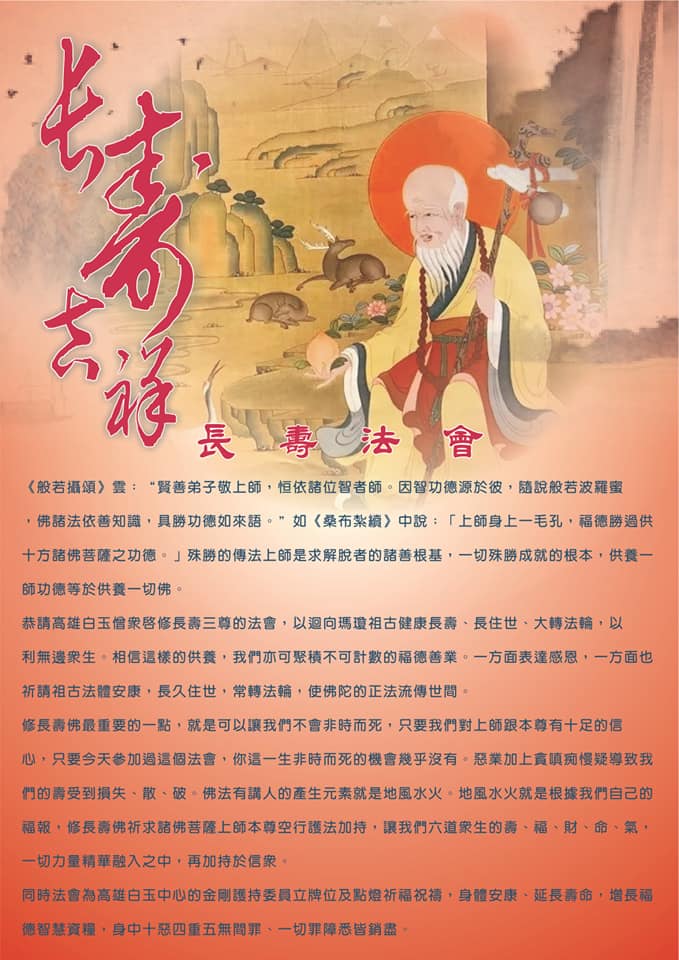 长寿
吉祥
長壽法會
《般若攝頌》雲：“賢善弟子敬上師，恒依諸位智者師。因智功德源於彼，隨說般若波羅蜜
，佛諸法依善知識，具勝功德如來語。”如《桑布紮續》中說：「上師身上一毛孔，福德勝過供
十方諸佛菩薩之功德。」殊勝的傳法上師是求解脫者的諸善根基，一切殊勝成就的根本，供養一
師功德等於供養一切佛。
恭請高雄白玉僧衆啓修長壽三尊的法會，以迴向瑪瓊祖古健康長壽、長住世、大轉法輪，以
利無邊衆生。相信這樣的供養，我們亦可聚積不可計數的福德善業。一方面表達感恩，一方面也
祈請祖古法體安康，長久住世，常轉法輪，使佛陀的正法流傳世間。
修長壽佛最重要的一點，就是可以讓我們不會非時而死，只要我們對上師跟本尊有十足的信
心，只要今天參加過這個法會，你這一生非時而死的機會幾乎沒有。惡業加上貪嗔痴慢疑導致我
們的壽受到損失、散、破。佛法有講人的產生元素就是地風水火。地風水火就是根據我們自己的
福報，修長壽佛祈求諸佛菩薩上師本尊空行護法加持，讓我們六道衆生的壽、福、財、命、氣，
一切力量精華融入之中，再加持於信衆。
同時法會為高雄白玉中心的金剛護持委員立牌位及點燈祈福祝禱，身體安康、延長壽命，增長福
德智慧資糧，身中十惡四重五無間罪、一切罪障悉皆銷盡。